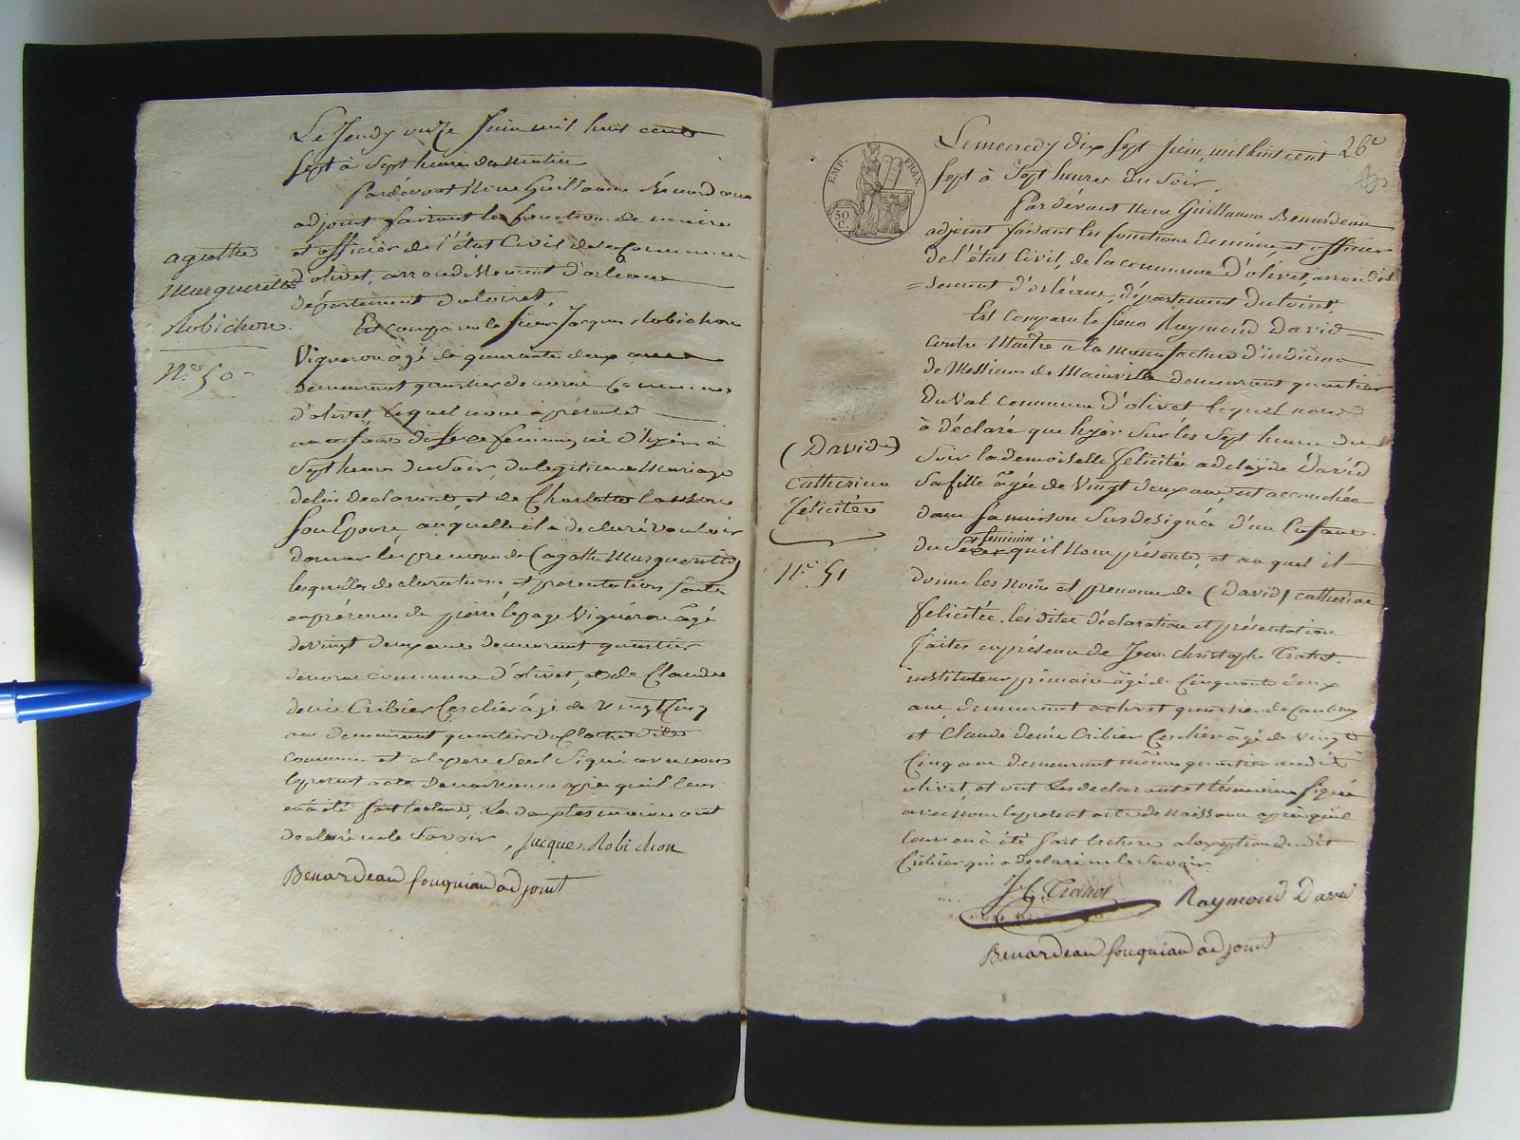 Le Jeudy onze Juin mil huit cent
sept à sept heures du matin
Pardevant Nous Guillaume Bénardeau
adjoint faisant les fonctions de maire
et officier de l'état Civil de la Commune
d'olivet, arrondissement d'orleans
département du loiret,
Est comparu le sieur Jacques Robichon
Vigneron âgé de quarante deux ans
demeurant quartier de Commune
d'olivet lequel nous a présenté
un enfant du sexe féminin, né d'hyer à
sept heures du soir, du legitime Mariage
de lui declarant et de Charlotte
son Epouse, auquel il a declaré vouloir
donner les prenoms de (agathe Marguerite)
lesquelles declaration et présentation faites
en présence de pierre lepage Vigneron âgé
de vingt deux ans demeurant quartier
commune d'olivet, et de Claude
denis Cribier Cerclier âgé de vingt Cinq
ans demeurant quartier du Cloitre dite
commune et a le pere seul signé avec nous
le present acte de naissance après qu'il leur
en a été fait lecture, les temoins ont
declaré ne le savoir, Jacques Robichon
Benardeau fouquiau adjoint
agathe
Marguerite
Robichon.
N.º 50
26e
EMP. FRAN.
50 C.
Le mercredy dix sept Juin, mil huit cent
sept à sept heures du soir,
Par dévant Nous Guillaume Benardeau
adjoint faisant les fonctions de maire, et officier
de l'état Civil, de la commune d'olivet, arrondis
=sement d'orléans, département du loiret,
Est Comparu le sieur Raymond David
contre Maître a la manufacture d'indienne
de Messieurs de Mainville demeurant quartier
du Val commune d'olivet lequel nous
à déclaré que hyer sur les sept heures du
soir la demoiselle félicitée adelaÿde David
sa fille âgée de vingt deux ans, est accouchée
dans sa maison susdesignée d'un Enfant
féminin
du Sexe qu'il Nous présente, et au quel il
donne les noms et prenoms de (David) catherine
felicitée, les dites déclaration et présentation
faites en présence de Jean Christophe Trotot
instituteur primaire âgé de Cinquante deux
ans, demeurant a olivet quartier de
et Claude denis Cribier Cerclier âgé de vingt
Cinq ans demeurant même quartier audit
olivet, et ont les declarant et témoins signé
avec nous le present acte de naissance après qu'il
leur en à été fait lecture a l'exception dudit
Cribier qui a declaré ne le savoir
J C. Trotot Raymond David
Benardeau fouquiau adjoint
(David)
catherine
félicitée
N.º 51